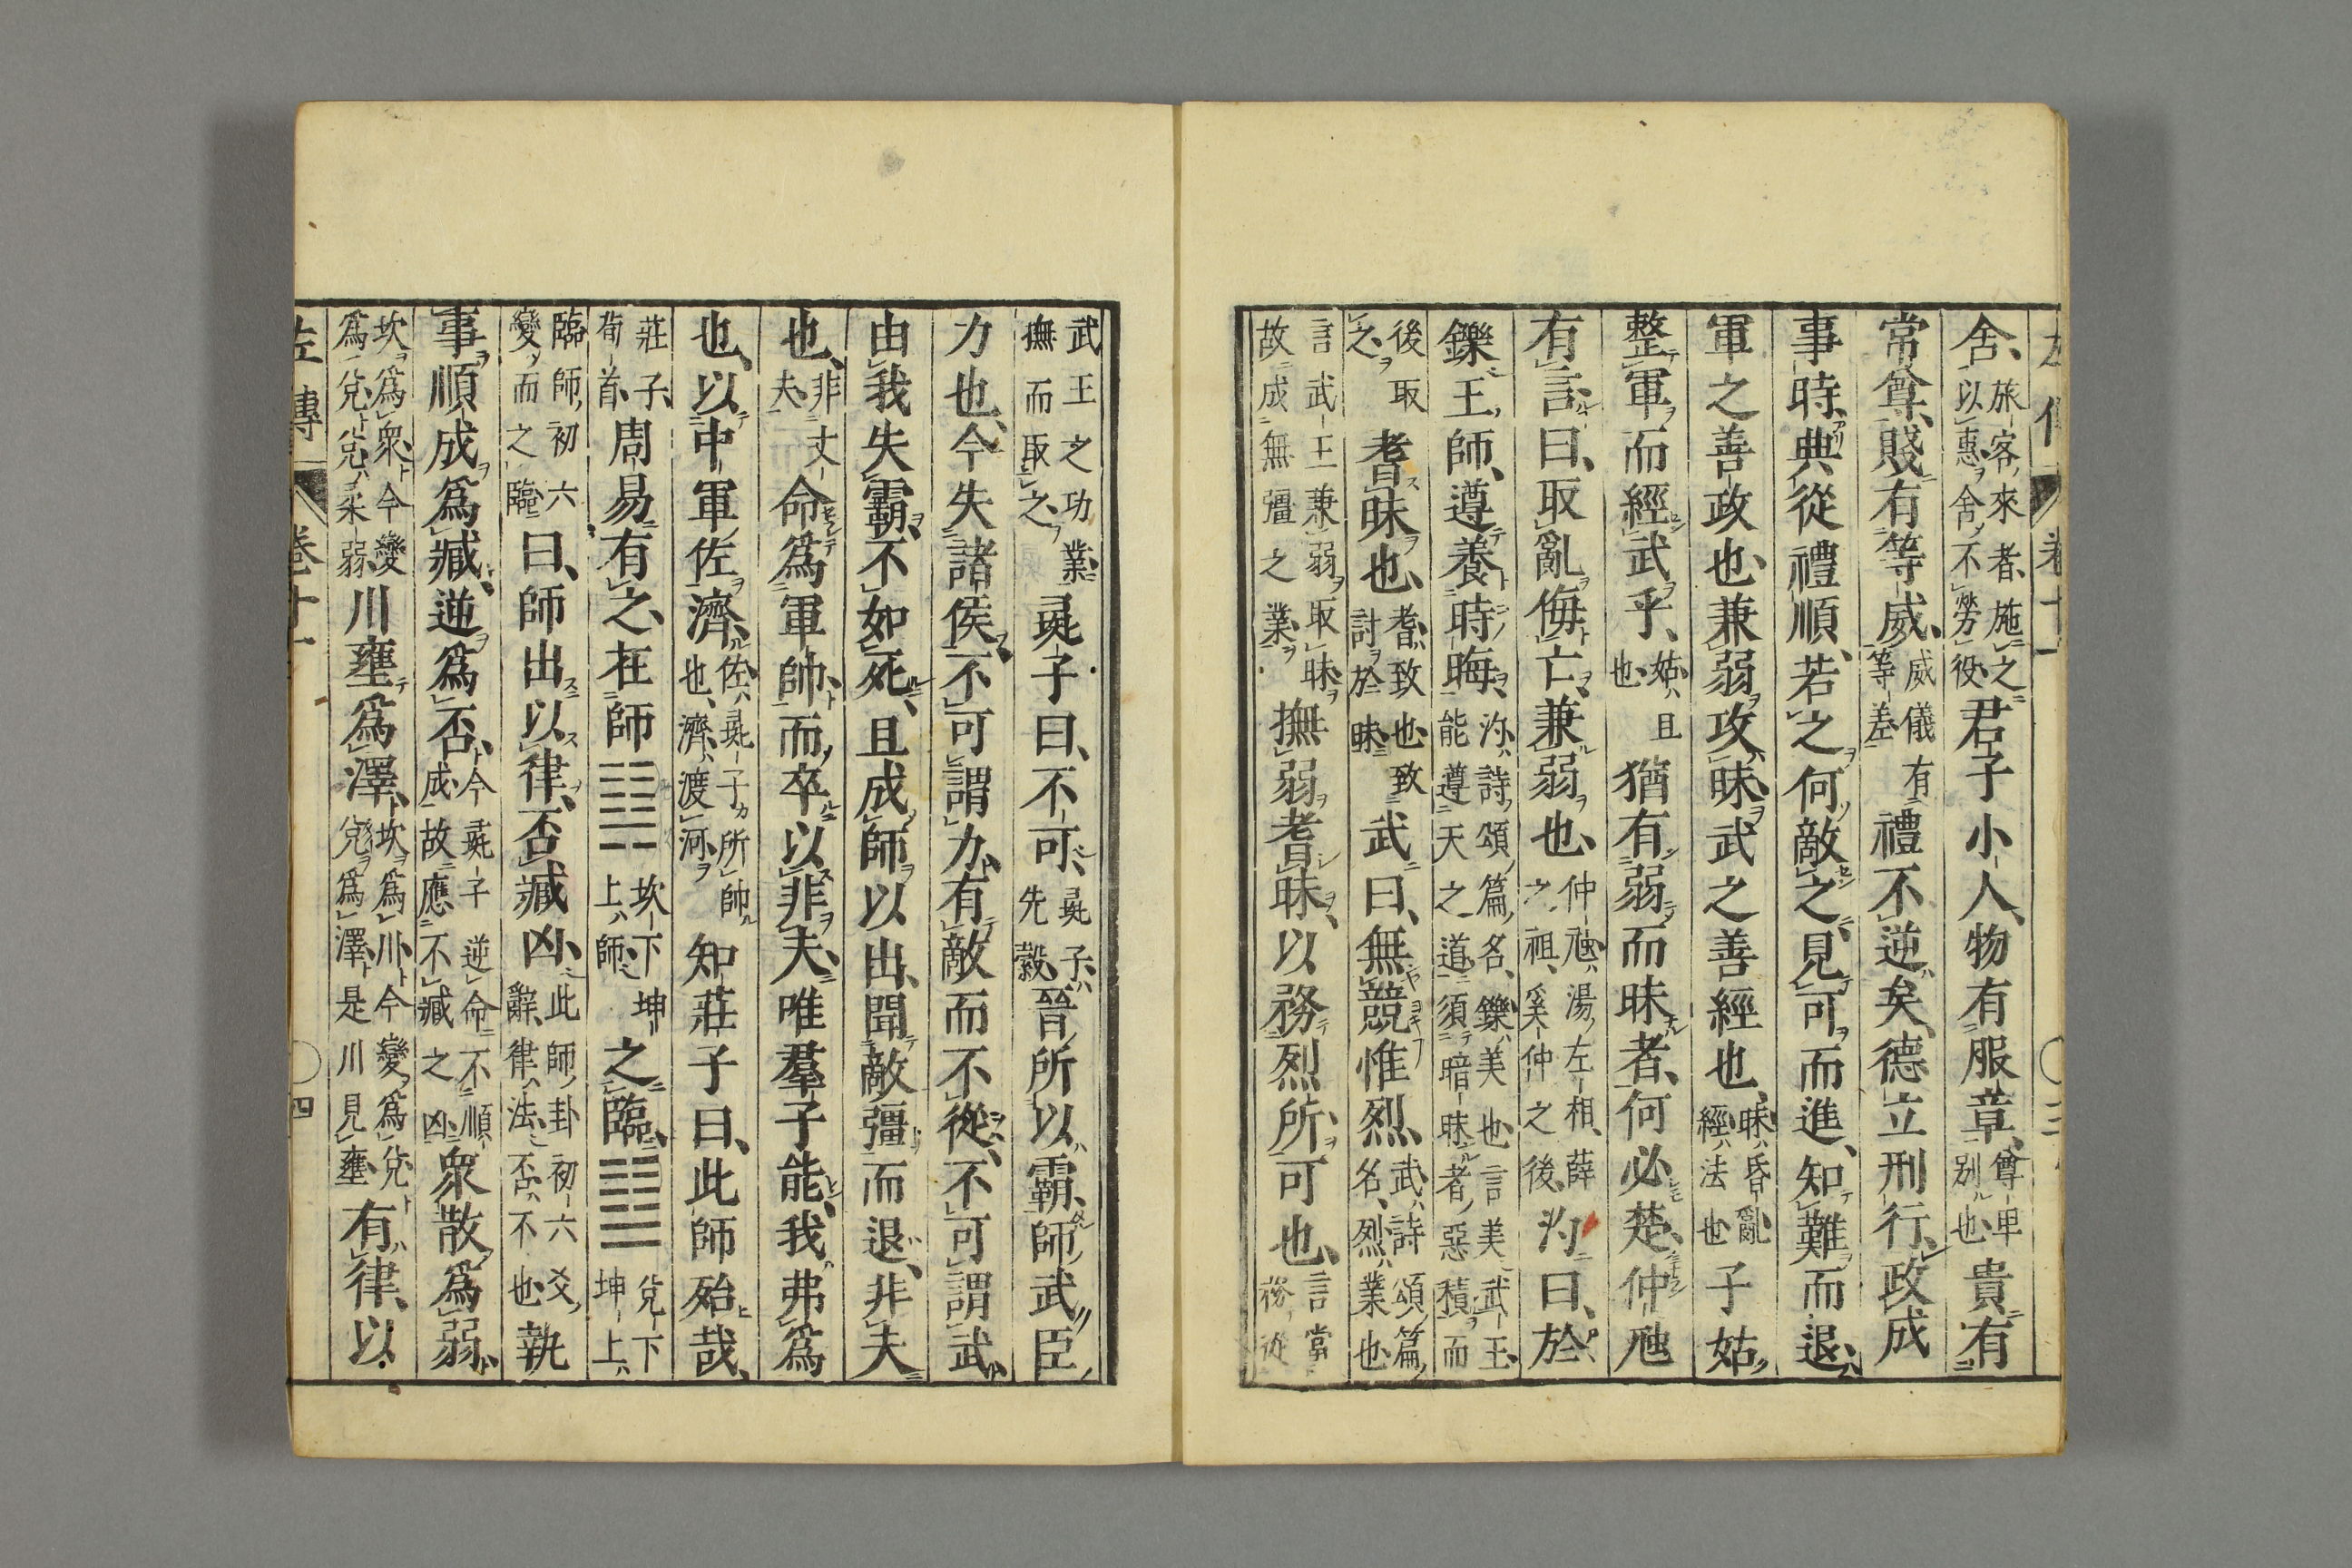 左傳 卷十一 三
舍、旅客來者、施之以惠、舍不勞役、君子小人、物有服章、尊卑別也、貴有
常尊、賤有等威、威儀有等差禮不逆矣、德立刑行、政成
事時、典從禮順、若之何敵之、見可而進、知難而退、
軍之善政也、兼弱攻昧、武之善經也、昧、昏亂經、法也子姑
整軍而經武乎、姑、且也猶有弱而昧者、何必楚、仲虺
有言曰、取亂侮亡、兼弱也、仲虺、湯左相、薛之祖、奚仲之後、汋曰、於
鑠王師、遵養時晦、汋、詩頌篇名、鑠、美也言美武王、能遵天之道、須暗昧者惡積而
後取之、耆昧也、耆、致也、致討於昧武曰、無競惟烈、武、詩頌篇名、烈、業也
言武王兼弱取昧故成無疆之業撫弱耆昧、以務烈所、可也、言當務從
武王之功業撫而取之彘子曰、不可、彘子、先縠、晉所以霸、師武臣
力也、今失諸侯、不可謂力、有敵而不從、不可謂武、
由我失霸、不如死、且成師以出、聞敵彊而退、非夫
也、非丈夫命爲軍帥、而卒以非夫、唯羣子能、我弗爲
也、以中軍佐濟、佐、彘子所帥也、濟、渡河知莊子曰、此師殆哉、
莊子、荀首、周易有之、在師䷆坎下坤上、師、之臨、䷒兌下坤上、
臨師初六變而之臨曰、師出以律、否臧凶、此師卦初六爻辭、律、法、否、不也執
事順成爲臧、逆爲否、今彘子逆命不順成、故應不臧之凶衆散爲弱、
坎爲衆、今變爲兌、兌、柔弱川壅爲澤、坎爲川、今變爲兌、兌爲澤、是川見壅有律、以
左傳 卷十一 四